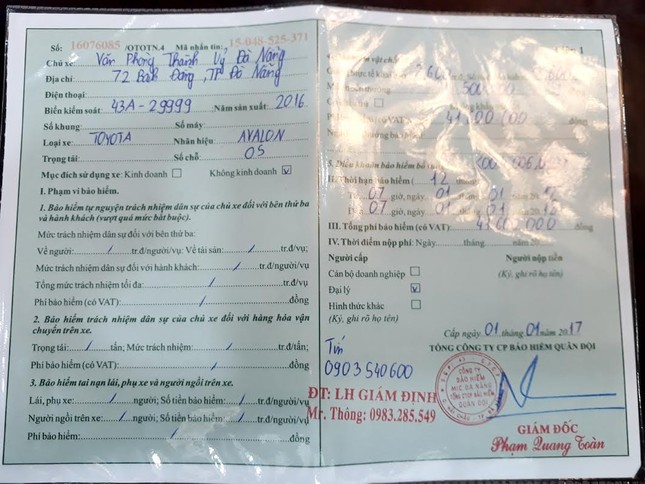 Số: 16076085 /OTOTN.4 Mã nhân tin: 15-048-525-371
Chủ xe Văn Phòng Thành Uỷ Đà Nẵng
Địa chỉ 72 Bạch Đằng, TP Đà Nẵng
Điện thoại
Biển kiểm soát: 43A-29999 Năm sản xuất: 2016
Số khung: Số máy:
Loại xe: TOYOTA Nhãn hiệu: AVALON
Trọng tải: Số chỗ: 05
Mục đích sử dụng xe: Kinh doanh Không kinh doanh v
I. Phạm vi bảo hiểm.
1. Bảo hiểm tự nguyện trách nhiệm dân sự của chủ xe đối với bên thứ ba
và hành khách (vượt quá mức bắt buộc).
Mức trách nhiệm dân sự đối với bên thứ ba:
Về người: / tr.đ/người/vụ; Về tài sản: / tr.đ/vụ;
Mức trách nhiệm dân sự đối với hành khách: / tr.đ/người/vụ
Tổng mức trách nhiệm tối đa: / tr.đ/vụ
Phí bảo hiểm (có VAT): / đồng
2. Bảo hiểm trách nhiệm dân sự của chủ xe đối với hàng hóa vận
chuyển trên xe.
Trọng tải: / tấn; Mức trách nhiệm: / tr.đ/tấn/vụ
Phí bảo hiểm (có VAT): / đồng
3. Bảo hiểm tai nạn lái, phụ xe và người ngồi trên xe.
Lái, phụ xe: / người; Số tiền bảo hiểm: / tr.đ/người/vụ
Người ngồi trên xe: / người; Số tiền bảo hiểm: / tr.đ/người/vụ
Phí bảo hiểm: / đồng
vật chất
500
(có VAT) đồng
5. Điều khoản bảo hiểm bổ
II. Thời hạn bảo hiểm ( 12 tháng)
Từ 07 giờ, ngày 01 tháng 01 năm 20
07 giờ, ngày 01 01 20
III. Tổng phí bảo hiểm (có VAT): đồng
IV. Thời điểm nộp phí: Ngày tháng năm 20
Người cấp Người nộp tiền
Cán bộ doanh nghiệp (Ký, ghi rõ họ tên)
Đại lý v
Hình thức khác
(Ký, ghi rõ họ tên)
Cấp ngày 01 tháng 01 năm 2017
TỔNG CÔNG TY CP BẢO HIỂM QUÂN ĐỘI
0903540600
CÔNG TY
BẢO HIỂM
MIC ĐÀ NẴNG
TỔNG CTCP BẢO HIỂM
QUÂN ĐỘI
ĐT: LH GIÁM ĐỊNH
Mr. Thông: 0983.285.549
GIÁM ĐỐC
Phạm Quang Toàn